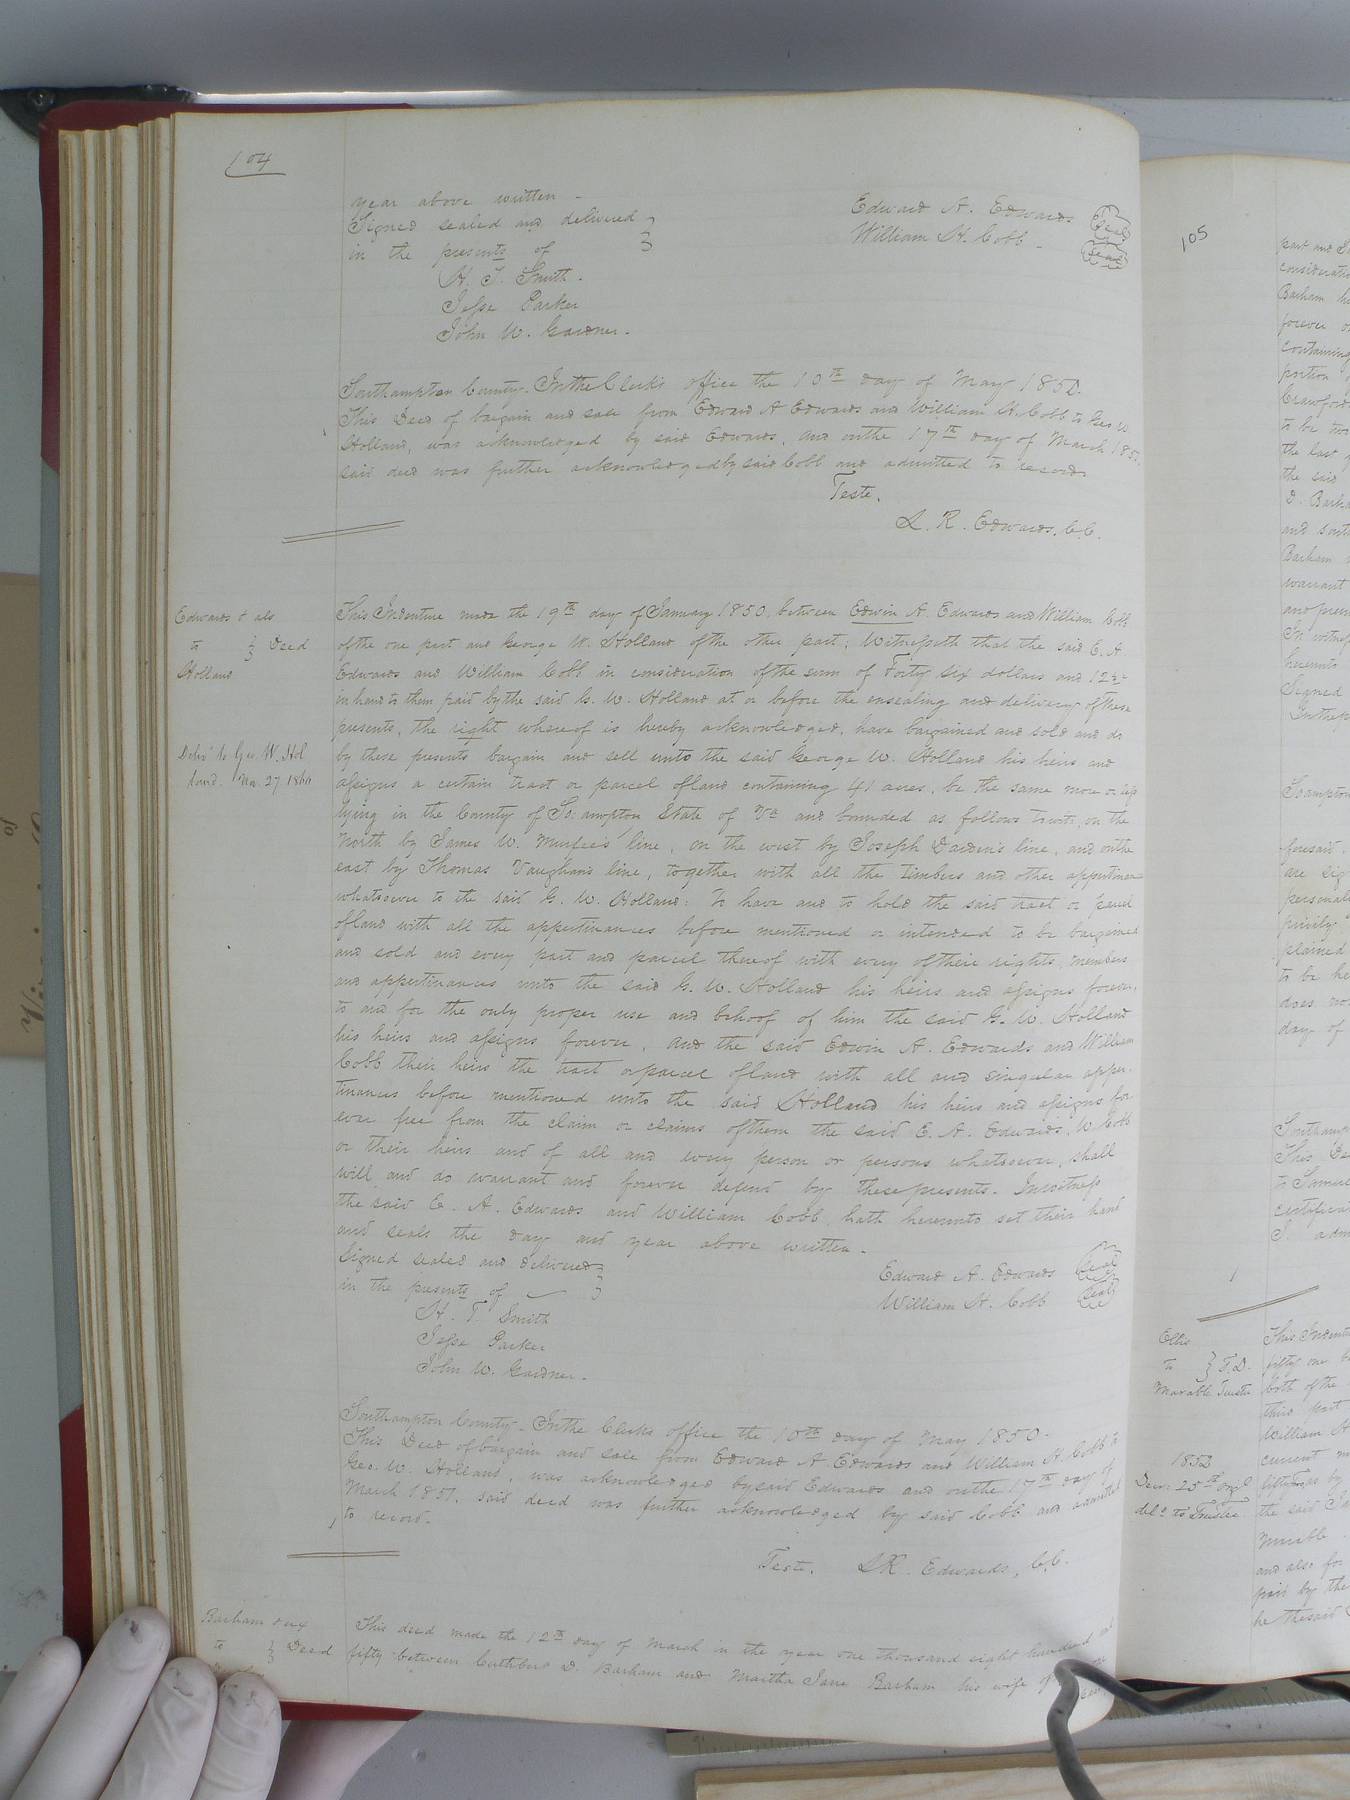 104
year above written -
Signed sealed and delivered }
in the presents of
H. T. Smith.
Jesse Parker
John W. Gardner.
Edward A. Edwards Seal
William H. Cobb - Seal
Southampton County. In the Clerk's office the 10th day of May 1850.
This Deed of bargain and sale from Edward A Edwards and William H. Cobb to Geo W
Holland, was acknowledged by said Edwards, and on the 17th day of March 185
said deed was further acknowledged by said Cobb and admitted to record.
Teste.
L. R. Edwards, C.C.
Edwards & als
to } Deed
Holland
Deliv'd to Geo. W. Hol
land. 27 1860
This Indenture made the 19th day of January 1850, between Edwin A. Edwards and William Cobb
of the one part and George W. Holland of the other part; Witnesseth that the said E. A
Edwards and William Cobb in consideration of the sum of Forty six dollars and 12½
in hand to them paid by the said G. W. Holland at or before the ensealing and delivery of these
presents, the right whereof is hereby acknowledged, have bargained and sold and do
by these presents bargain and sell unto the said George W. Holland his heirs and
assigns a certain tract or parcel of land containing 41 acres, be the same more or less
lying in the County of So:ampton State of Va and bounded as follows to wit, on the
North by James W. Murfee's line, on the west by Joseph Darden's line, and on the
east by Thomas Vaughan's line, together with all the timbers and other appertinan
whatsoever to the said G. W. Holland: To have and to hold the said tract or parcel
of land with all the appertinances before mentioned or intended to be bargained
and sold and every part and parcel thereof with every of their rights, members
and appertinances unto the said G. W. Holland his heirs and assigns forever,
to and for the only proper use and behoof of him the said G. W. Holland
his heirs and assigns forever. And the said Edwin A. Edwards and William
Cobb their heirs the tract or parcel of land with all and singular apper-
tinances before mentioned unto the said Holland his heirs and assigns for
ever free from the claim or claims of them the said E. A. Edwards, W Cobb
or their heirs and of all and every person or persons whatsoever, shall
will and do warrant and forever defend by these presents. In witness
the said E. A. Edwards and William Cobb hath hereunto set their hand
and seals the day and year above written.
Signed sealed and delivered }
in the presents of
H. T. Smith
Jesse Parker
John W. Gardner.
Edward A. Edwards Seal
William H. Cobb Seal
Southampton County - In the Clerks office the 10th day of May 1850.
This Deed of bargain and sale from Edward A Edwards and William H. Cobb to
Geo. W. Holland, was acknowledged by said Edwards and on the 17th day of
March 1851, said deed was further acknowledged by said Cobb and admitted
to record.
Teste. L R. Edwards, C.C.
Barham & ux
to } Deed
This deed made the 12th day of March in the year one thousand eight hundred and
fifty between Cuthbert D. Barham and Martha Jane Barham his wife of the
105
part and
consideratio
Barham he
forever
containing
portion
Crawford
to be
the last
the said
D. Barha
and
Barham
warrant
and
In witnes
hereunto
Signed
In the p
So ampton
foresaid.
are sig
personal
privily
plained
to be he
does no
day of
Southamp
This De
to Samue
certifica
adm
Ellis
to } T.D.
Marable Trustee
This Indent
fifty one b
both of the
third part
William H
current m
fifteen by
the said
Marable
and also fo
paid by the
he the said
Decr. 25th orig
deld to Trustee